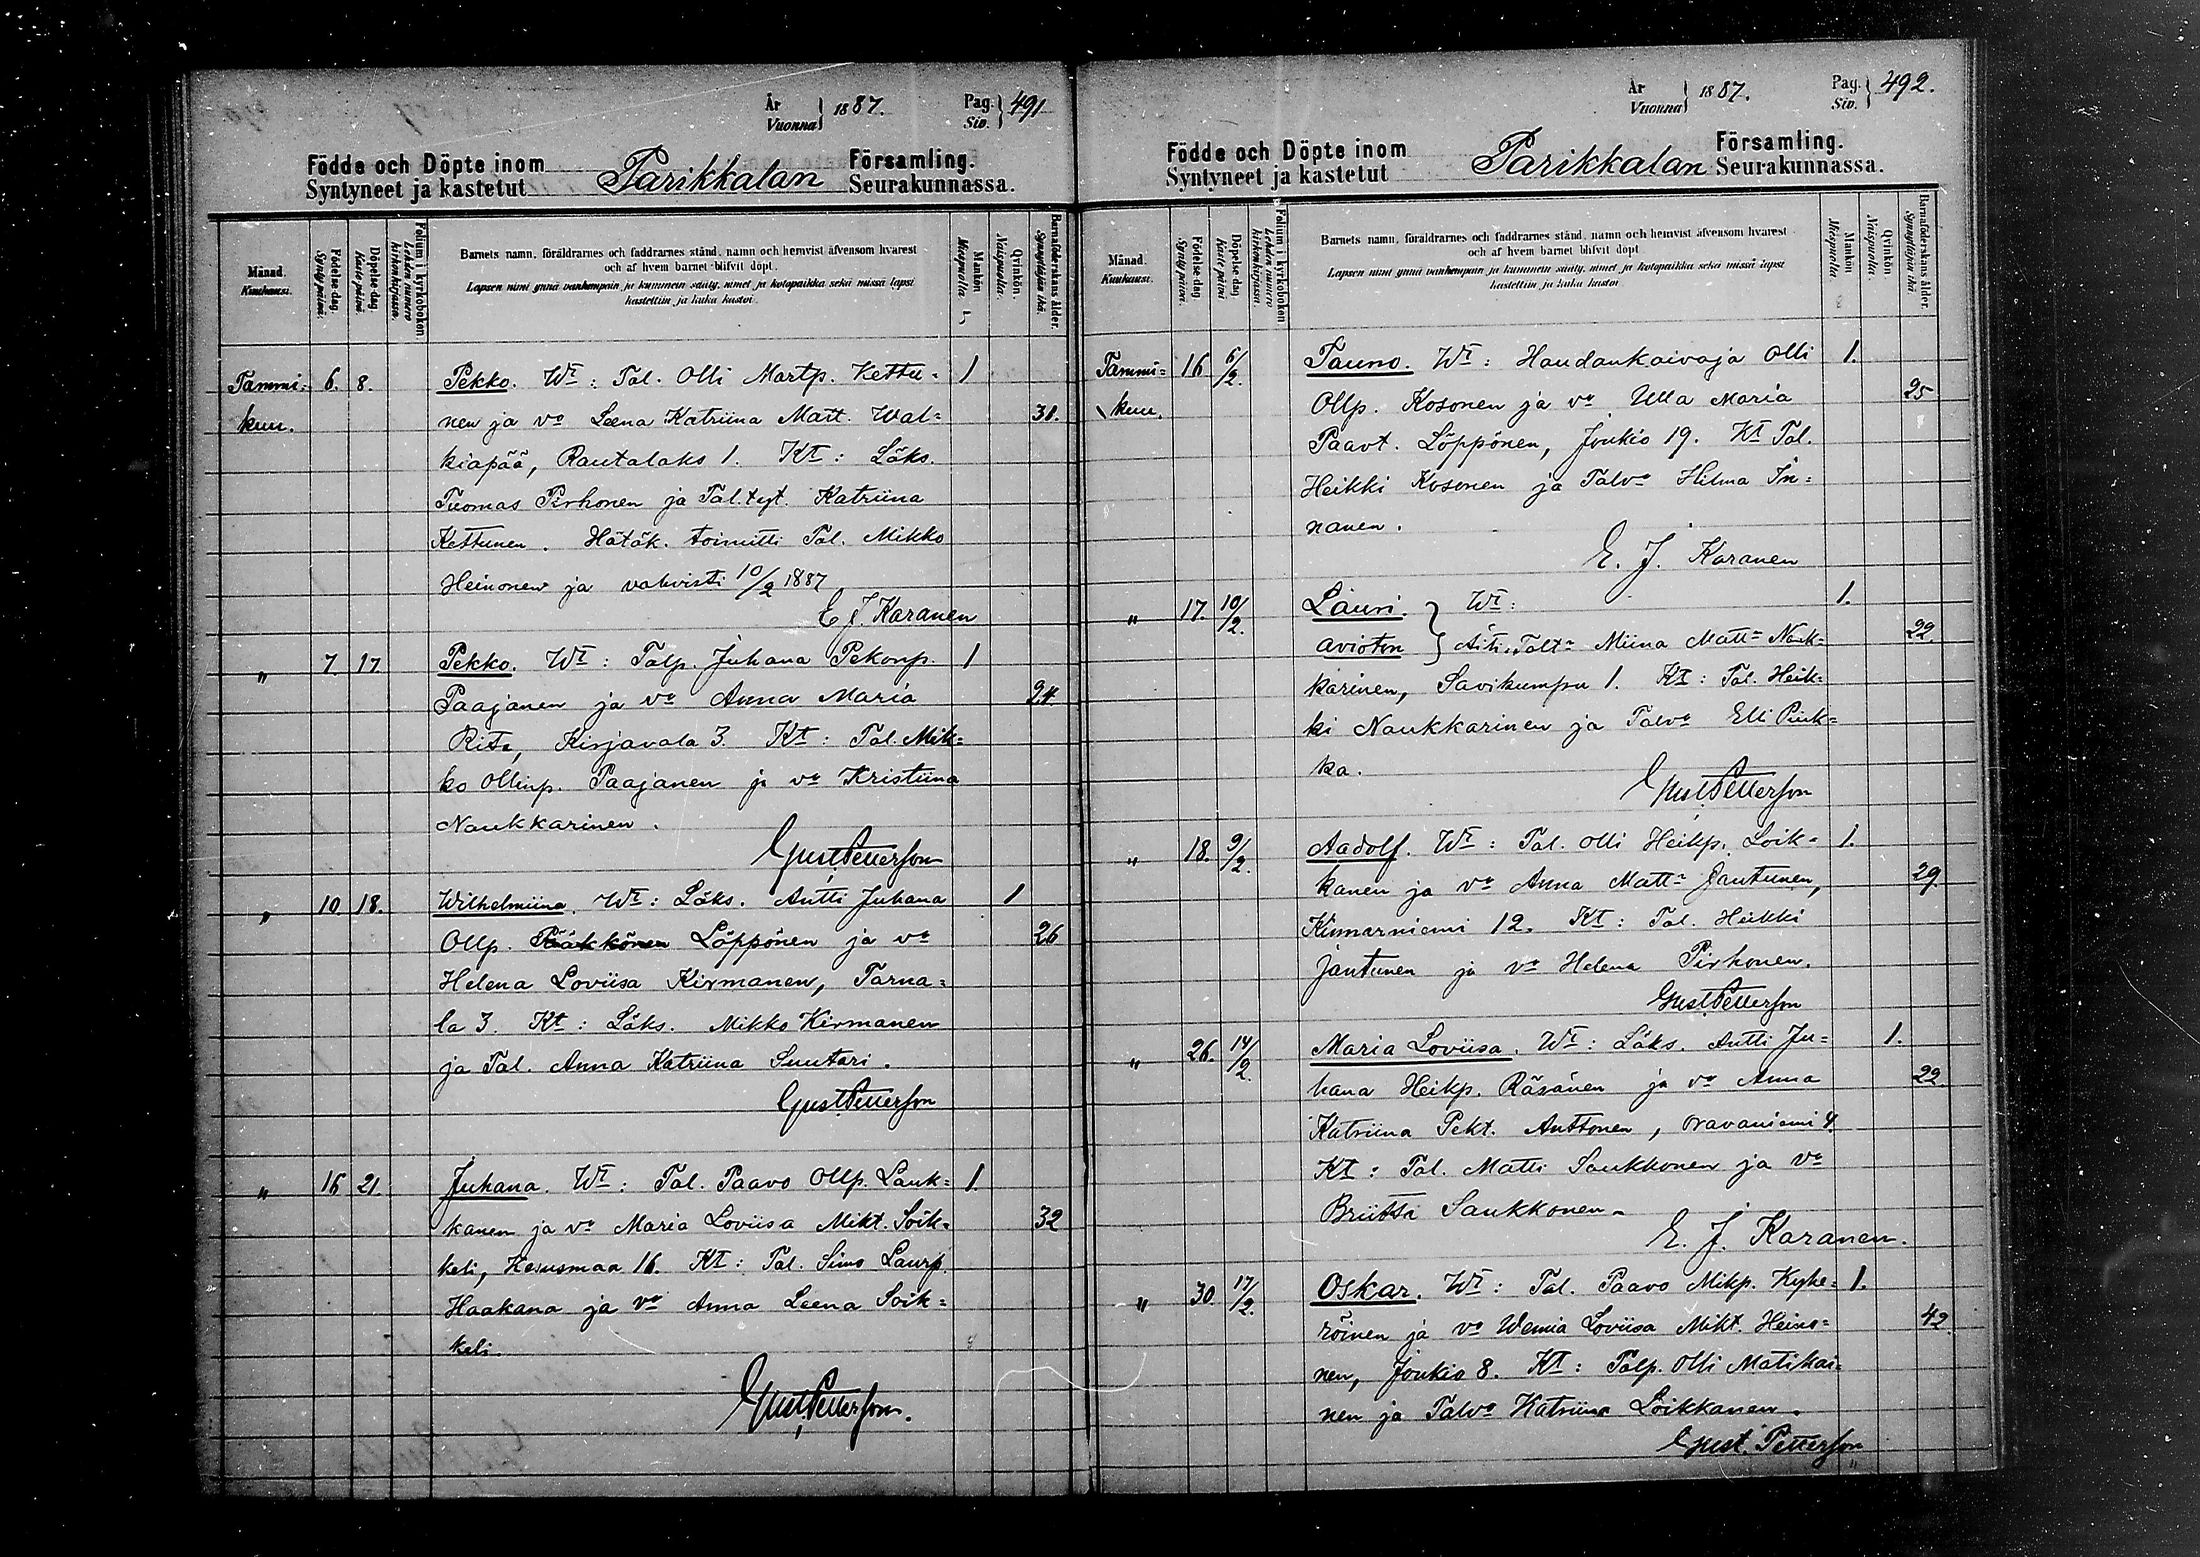 År
Vuonna } 1887.
Pag.
Siv. } 491
Födde och Döpte inom Parikkalan Församling.
Syntyneet ja kastetut Seurakunnassa.
Månad. Kuukausi.
Födelse dag. Synty päivä.
Döpelse dag. Kaste päivä.
Folium i kyrkoboken. Lehden numero kirkonkirjassa.
Barnets namn, föräldrarnes och faddrarnes stånd, namn och hemvist äfvensom hvarest
och af hvem barnet blifvit döpt.
Lapsen nimi ynnä vanhempain ja kummein sääty, nimet ja kotopaikka sekä missä lapsi
kastettiin ja kuka kastoi.
Mankön Miespuolta
Qvinkön. Naispuolta.
Barnaföderskans ålder. Synnyttäjän ikä.
Tammi= 6. 8. Pekko. Wt: Tal. Olli Martp. Kettu= 1
kuu. nen ja vo Leena Katriina Matt. Wal= 31.
kiapää, Rautalaks 1. Kt: Läks.
Tuomas Pirhonen ja Tal.tyt. Katriina
Kettunen. Hätäk. toimitti Tal. Mikko
Heinonen ja vahvisti 10/2 1887
E. J. Karanen
" 7. 17 Pekko. Wt: Talp. Juhana Pekonp. 1
Paajanen ja vo Anna Maria 24
Rite, Kirjavala 3. Kt: Tal. Mik=
ko Ollinp. Paajanen ja vo Kristiina
Naukkarinen.
Gust Petterson
" 10. 18. Wilhelmiina. Wt: Läks. Antti Juhana 1
Ollp. Pääkkönen Löppönen ja vo 26
Helena Loviisa Kirmanen, Tarna=
la 3. Kt: Läks. Mikko Kirmanen
ja Tal. Anna Katriina Suutari.
Gust Petterson
" 16 21. Juhana. Wt: Tal. Paavo Ollp. Lauk= 1.
kanen ja vo Maria Loviisa Mikt. Soik= 32
keli, Kesusmaa 16. Kt: Tal. Simo Laurp.
Haakana ja vo Anna Leena Soik=
keli.
Gust Petterson.
År
Vuonna } 1887.
Pag.
Siv. } 492.
Födde och Döpte inom Parikkalan Församling.
Syntyneet ja kastetut Seurakunnassa.
Månad. Kuukausi.
Födelse dag. Synty päivä.
Döpelse dag. Kaste päivä.
Folium i kyrkoboken. Lehden numero kirkonkirjassa.
Barnets namn, föräldrarnes och faddrarnes stånd, namn och hemvist äfvensom hvarest
och af hvem barnet blifvit döpt.
Lapsen nimi ynnä vanhempain ja kummein sääty, nimet ja kotopaikka sekä missä lapsi
kastettiin ja kuka kastoi.
Mankön Miespuolta.
Qvinkön. Naispuolta.
Barnaföderskans ålder. Synnyttäjän ikä.
Tammi= 16 6/2. Tauno. Wt: Haudankaivaja Olli 1.
kuu. Ollp. Kosonen ja vo Ulla Maria 25
Paavt. Löppönen, Joukio 19. Kt Tal.
Heikki Kosonen ja Talvo Hilma In=
nanen.
E. J. Karanen
" 17. 10/2. Lauri. } Wt: 1.
avioton } Äiti. Talt. Miina Matt. Nauk= 22.
karinen, Savikumpu 1. Kt: Tal. Heik=
ki Naukkarinen ja Talvo Elli Pink=
ka.
Gust Petterson
" 18. 9/2. Aadolf. Wt: Tal. Olli Heikp. Loik= 1.
kanen ja vo Anna Matt. Jantunen, 29
Kinnarniemi 12. Kt: Tal. Heikki
Jantunen ja vo Helena Pirhonen.
Gust Petterson
" 26. 14/2. Maria Loviisa. Wt: Läks. Antti Ju= 1.
hana Heikp. Räsänen ja vo Anna 22
Katriina Pekt. Anttonen, Oravaniemi 4.
Kt: Tal. Matti Saukkonen ja vo
Briitta Saukkonen.
E. J. Karanen.
" 30. 17/2. Oskar. Wt: Tal. Paavo Mikp. Kyhe= 1.
röinen ja vo Wemia Loviisa Mikt. Heino= 42.
nen, Joukio 8. Kt: Talp. Olli Matikai=
nen ja Talvo Katriina Loikkanen.
Gust. Petterson